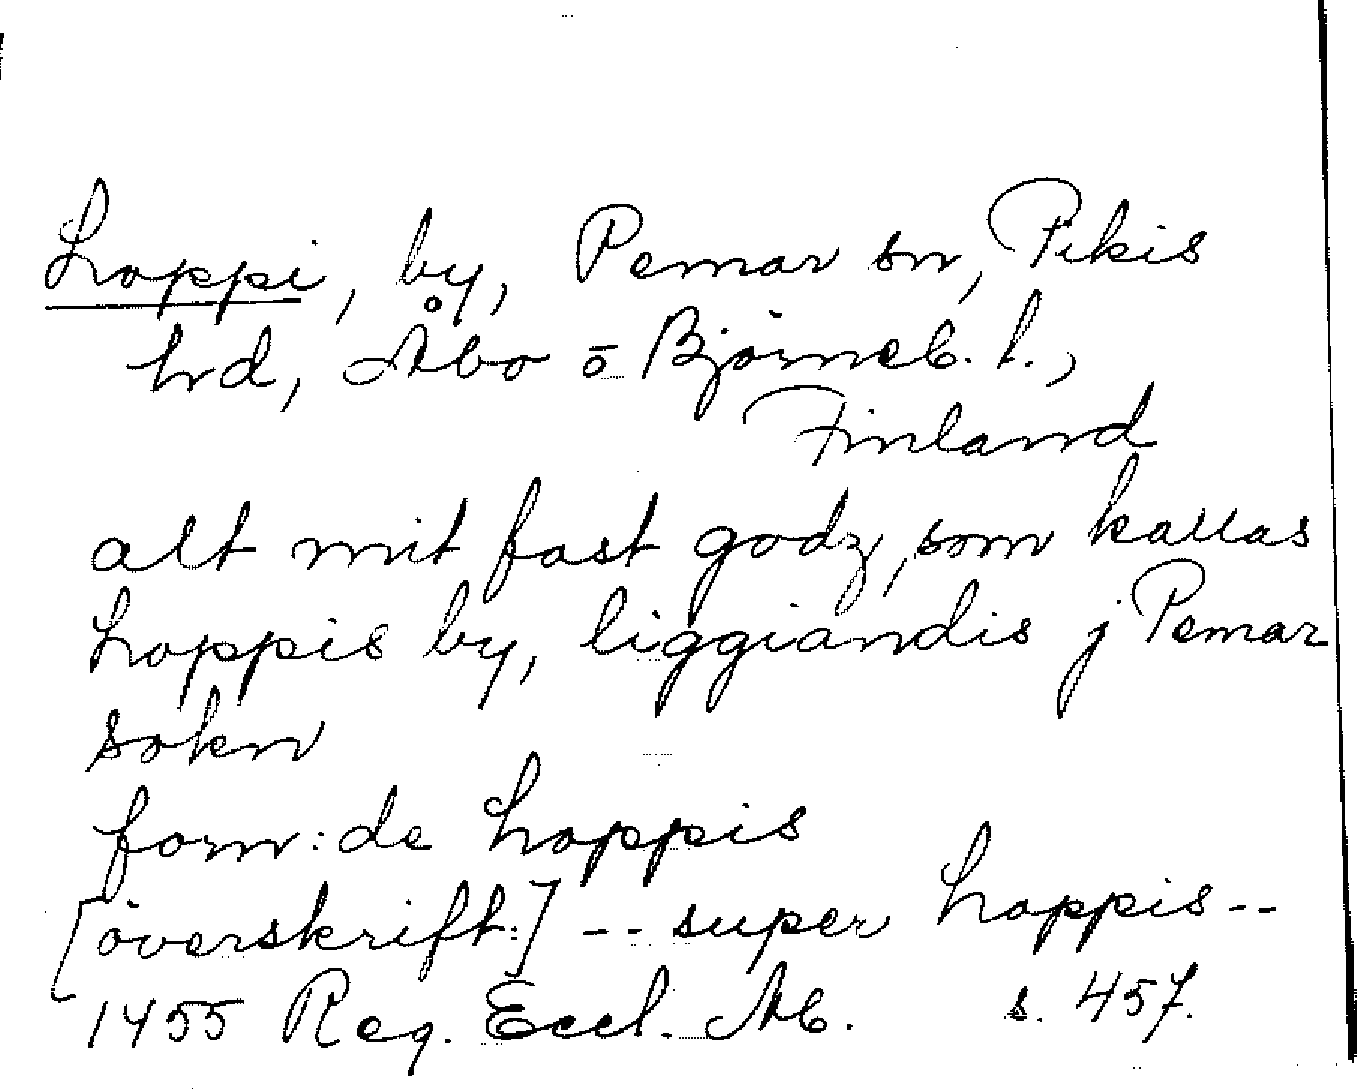 Loppi, by, Pemar sn, Pikis
hd, Åbo o Björneb. l.,
Finland
alt mit fast godz, som kallas
Loppis by, liggiandis j Pemar
sokn
forn: de Loppis
[överskrift:] -- super Loppis --
1455 Reg. Eccl. Ab. s. 457.